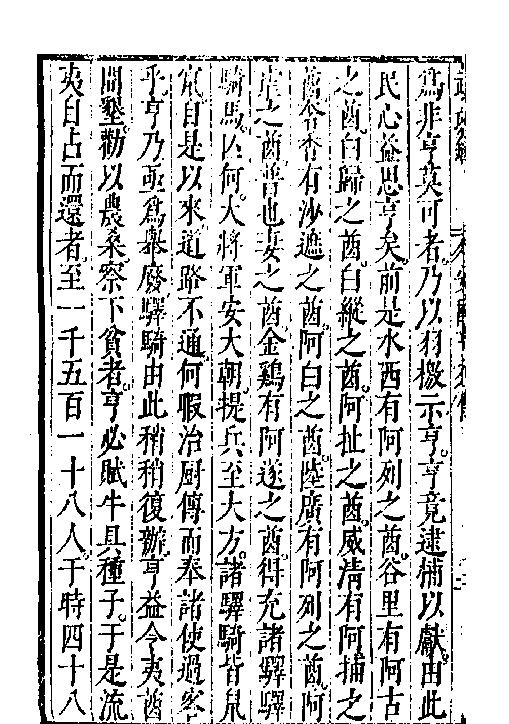 為非亨莫可者乃以羽檄示亨亨竟逮捕以獻由此
民心益思亨矣前是水西有阿列之酋谷里有阿古
之酋白歸之酋白縱之酋阿扯之酋威清有阿捕之
酋沓沓有沙遮之酋阿白之酋陸廣有阿列之酋阿
之酋普也妻之酋金鷄有阿遂之酋得充諸驛驛
騎馬亾何大將軍安大朝提兵至大方諸驛騎皆鼠
竄自是以來道路不通何暇治厨傳而奉諸使過客
乎亨乃亟為舉廢驛騎由此稍稍復辦亨益令夷酋
開墾勸以農桑察下貧者亨必賦牛具種子于是流
夷自占而還者至一千五百一十八人于時四十八